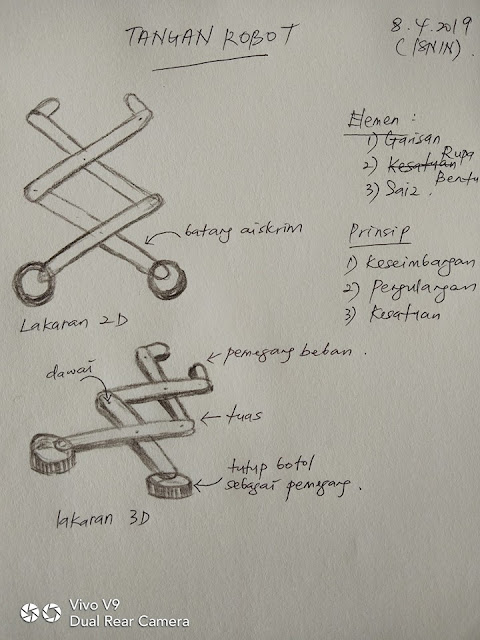 TANGAN ROBOT
8.4.2019
(ISNIN).
Elemen :
1) Garisan
2) Kesatuan Rupa
Bentu
3) Saiz.
Prinsip
1) Keseimbangan
2) Pergulangan
3) Kesatuan
batang aiskrim
Lakaran 2D
dawai
pemegang beban.
tuas
tutup botol
sebagai pemegang.
lakaran 3D
Vivo V9
Dual Rear Camera